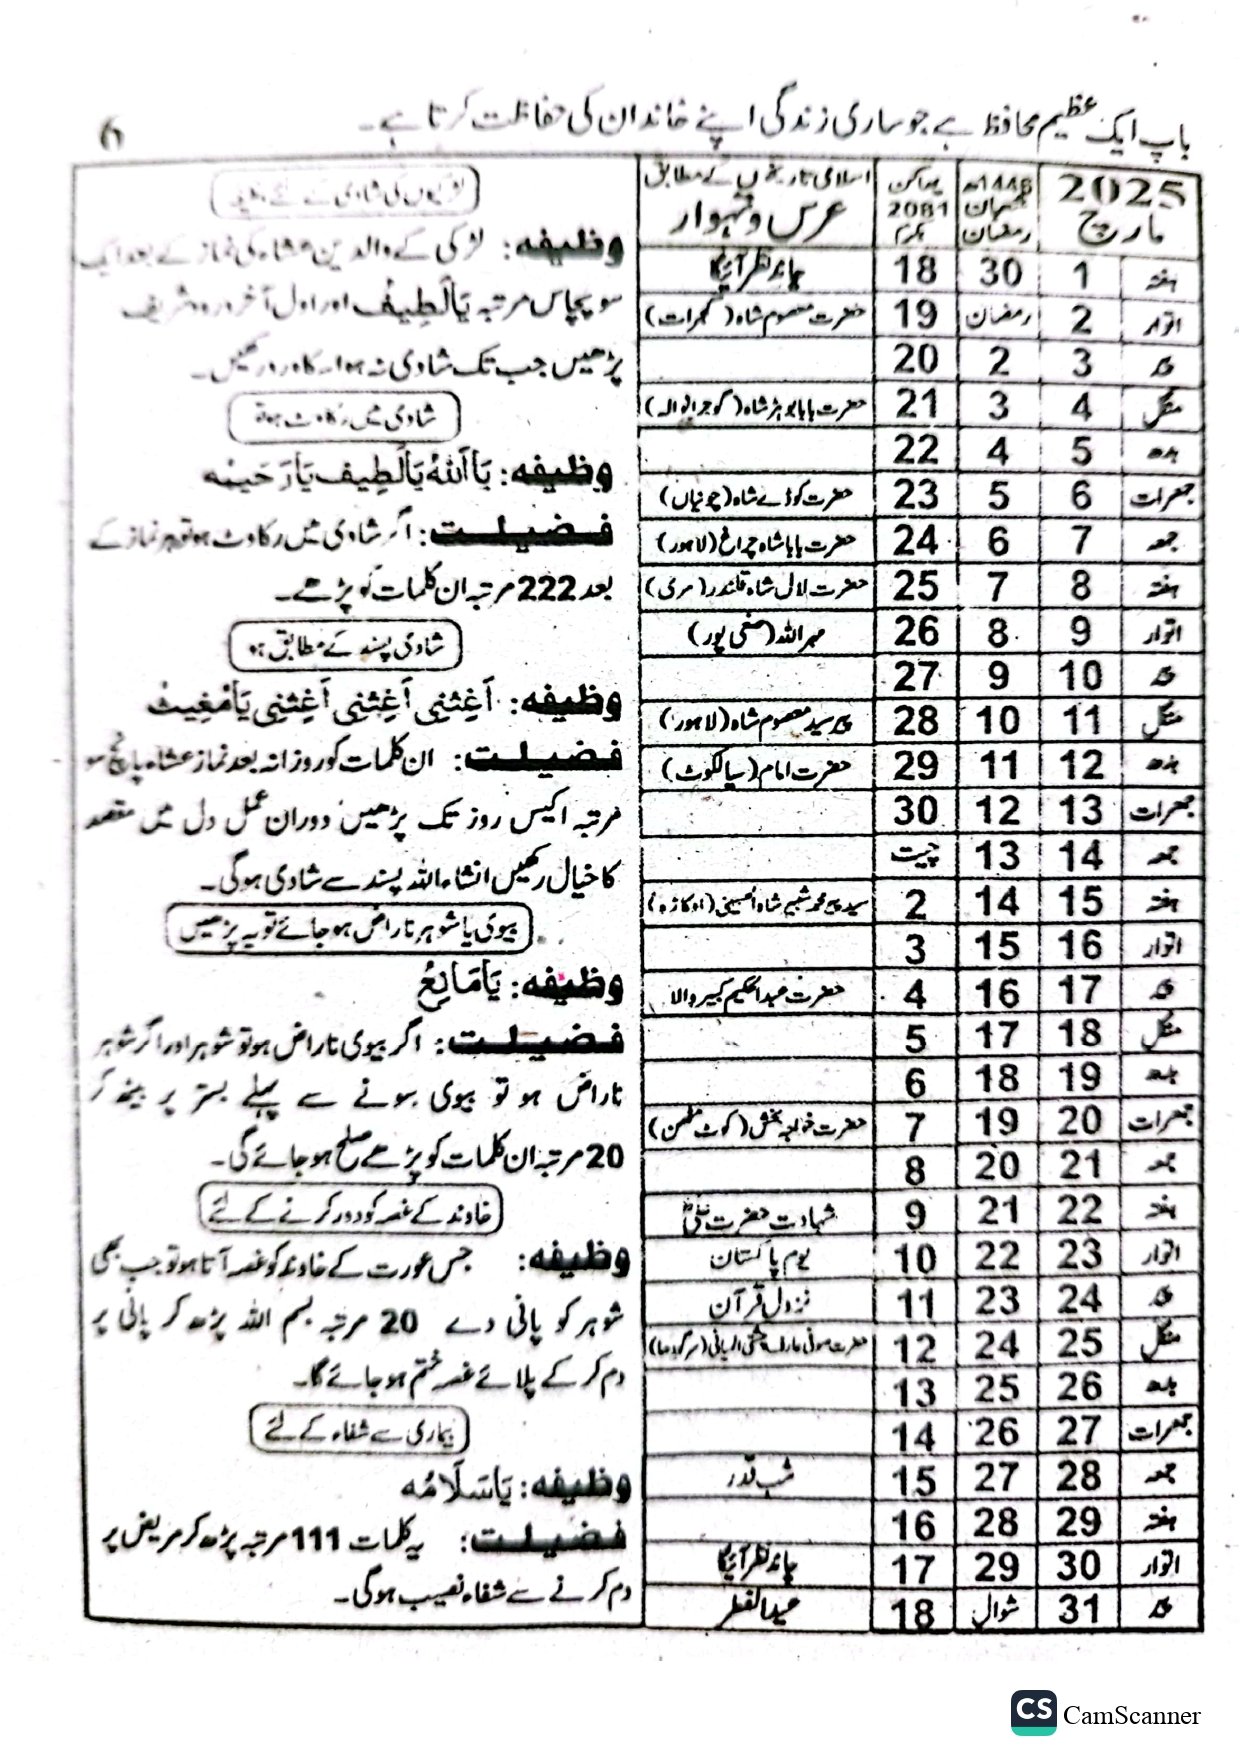 باپ ایک عظیم محافظ ہے جو ساری زندگی اپنے خاندان کی حفاظت کرتا ہے۔
6
2025 مارچ 1446ھ شعبان رمضان 2081 بکرم اسلامی تاریخوں کے مطابق عرس و تہوار
ہفتہ 1 30 18 چاند نظر آئیگا
اتوار 2 رمضان 19 حضرت معصوم شاہ (گجرات)
پیر 3 2 20
منگل 4 3 21 حضرت بابا بوہڑ شاہ (گوجرانوالہ)
بدھ 5 4 22
جمعرات 6 5 23 حضرت کوڈے شاہ (چونیاں)
جمعہ 7 6 24 حضرت بابا شاہ چراغ (لاہور)
ہفتہ 8 7 25 حضرت لال شاہ قلندر (مری)
اتوار 9 8 26 مہر اللہ (صفی پور)
پیر 10 9 27
منگل 11 10 28 پیر سید معصوم شاہ (لاہور)
بدھ 12 11 29 حضرت امام (سیالکوٹ)
جمعرات 13 12 30
جمعہ 14 13 چیت
ہفتہ 15 14 2 سید پیر محمد شبیر شاہ الحسینی (اوکاڑہ)
اتوار 16 15 3
پیر 17 16 4 حضرت عبدالحکیم کبیر والا
منگل 18 17 5
بدھ 19 18 6
جمعرات 20 19 7 حضرت خواجہ بخش (کوٹ مٹھن)
جمعہ 21 20 8
ہفتہ 22 21 9 شہادت حضرت علیؓ
اتوار 23 22 10 یوم پاکستان
پیر 24 23 11 نزول قرآن
منگل 25 24 12 حضرت صوفی (سرگودھا)
بدھ 26 25 13
جمعرات 27 26 14
جمعہ 28 27 15 شب قدر
ہفتہ 29 28 16
اتوار 30 29 17 چاند نظر آئیگا
پیر 31 شوال 18 عیدالفطر
لڑکیوں کی شادی کے لئے وظیفہ
وظیفہ: لڑکی کے والدین عشاء کی نماز کے بعد ایک
سو پچاس مرتبہ یَالَطِیفُ اور اول آخر درود شریف
پڑھیں جب تک شادی نہ ہو اسکا ورد رکھیں۔
شادی میں رکاوٹ ہو تو
وظیفہ: یَااَللّٰہُ یَالَطِیف یَارَحَیمُہ
فضیلت: اگر شادی میں رکاوٹ ہو تو ہر نماز کے
بعد 222 مرتبہ ان کلمات کو پڑھے۔
شادی پسند کے مطابق ہو
وظیفہ: اَغِثنِی اَغِثنِی اَغِثنِی یَامُغِیثُ
فضیلت: ان کلمات کو روزانہ بعد نماز عشاء پانچ سو
مرتبہ اکیس روز تک پڑھیں دوران عمل دل میں مقصد
کا خیال رکھیں انشاءاللہ پسند سے شادی ہوگی۔
بیوی یا شوہر ناراض ہو جائے تو یہ پڑھیں
وظیفہ: یَامَانِعُ
فضیلت: اگر بیوی ناراض ہو تو شوہر اور اگر شوہر
ناراض ہو تو بیوی سونے سے پہلے بستر پر بیٹھ کر
20 مرتبہ ان کلمات کو پڑھے صلح ہو جائے گی۔
خاوند کے غصہ کو دور کرنے کے لئے
وظیفہ: جس عورت کے خاوند کو غصہ آتا ہو تو جب بھی
شوہر کو پانی دے 20 مرتبہ بسم اللہ پڑھ کر پانی پر
دم کر کے پلائے غصہ ختم ہو جائے گا۔
بیماری سے شفاء کے لئے
وظیفہ: یَاسَلَامُہ
فضیلت: یہ کلمات 111 مرتبہ پڑھ کر مریض پر
دم کرنے سے شفاء نصیب ہوگی۔
CS CamScanner